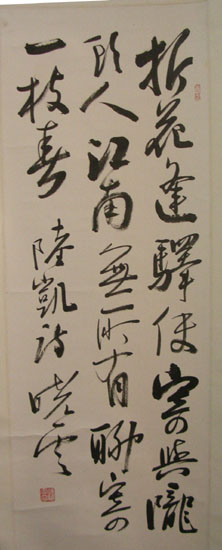 折花逢驛使寄與隴
頭人江南無所有聊寄
一枝春 陸凱詩 曉雲